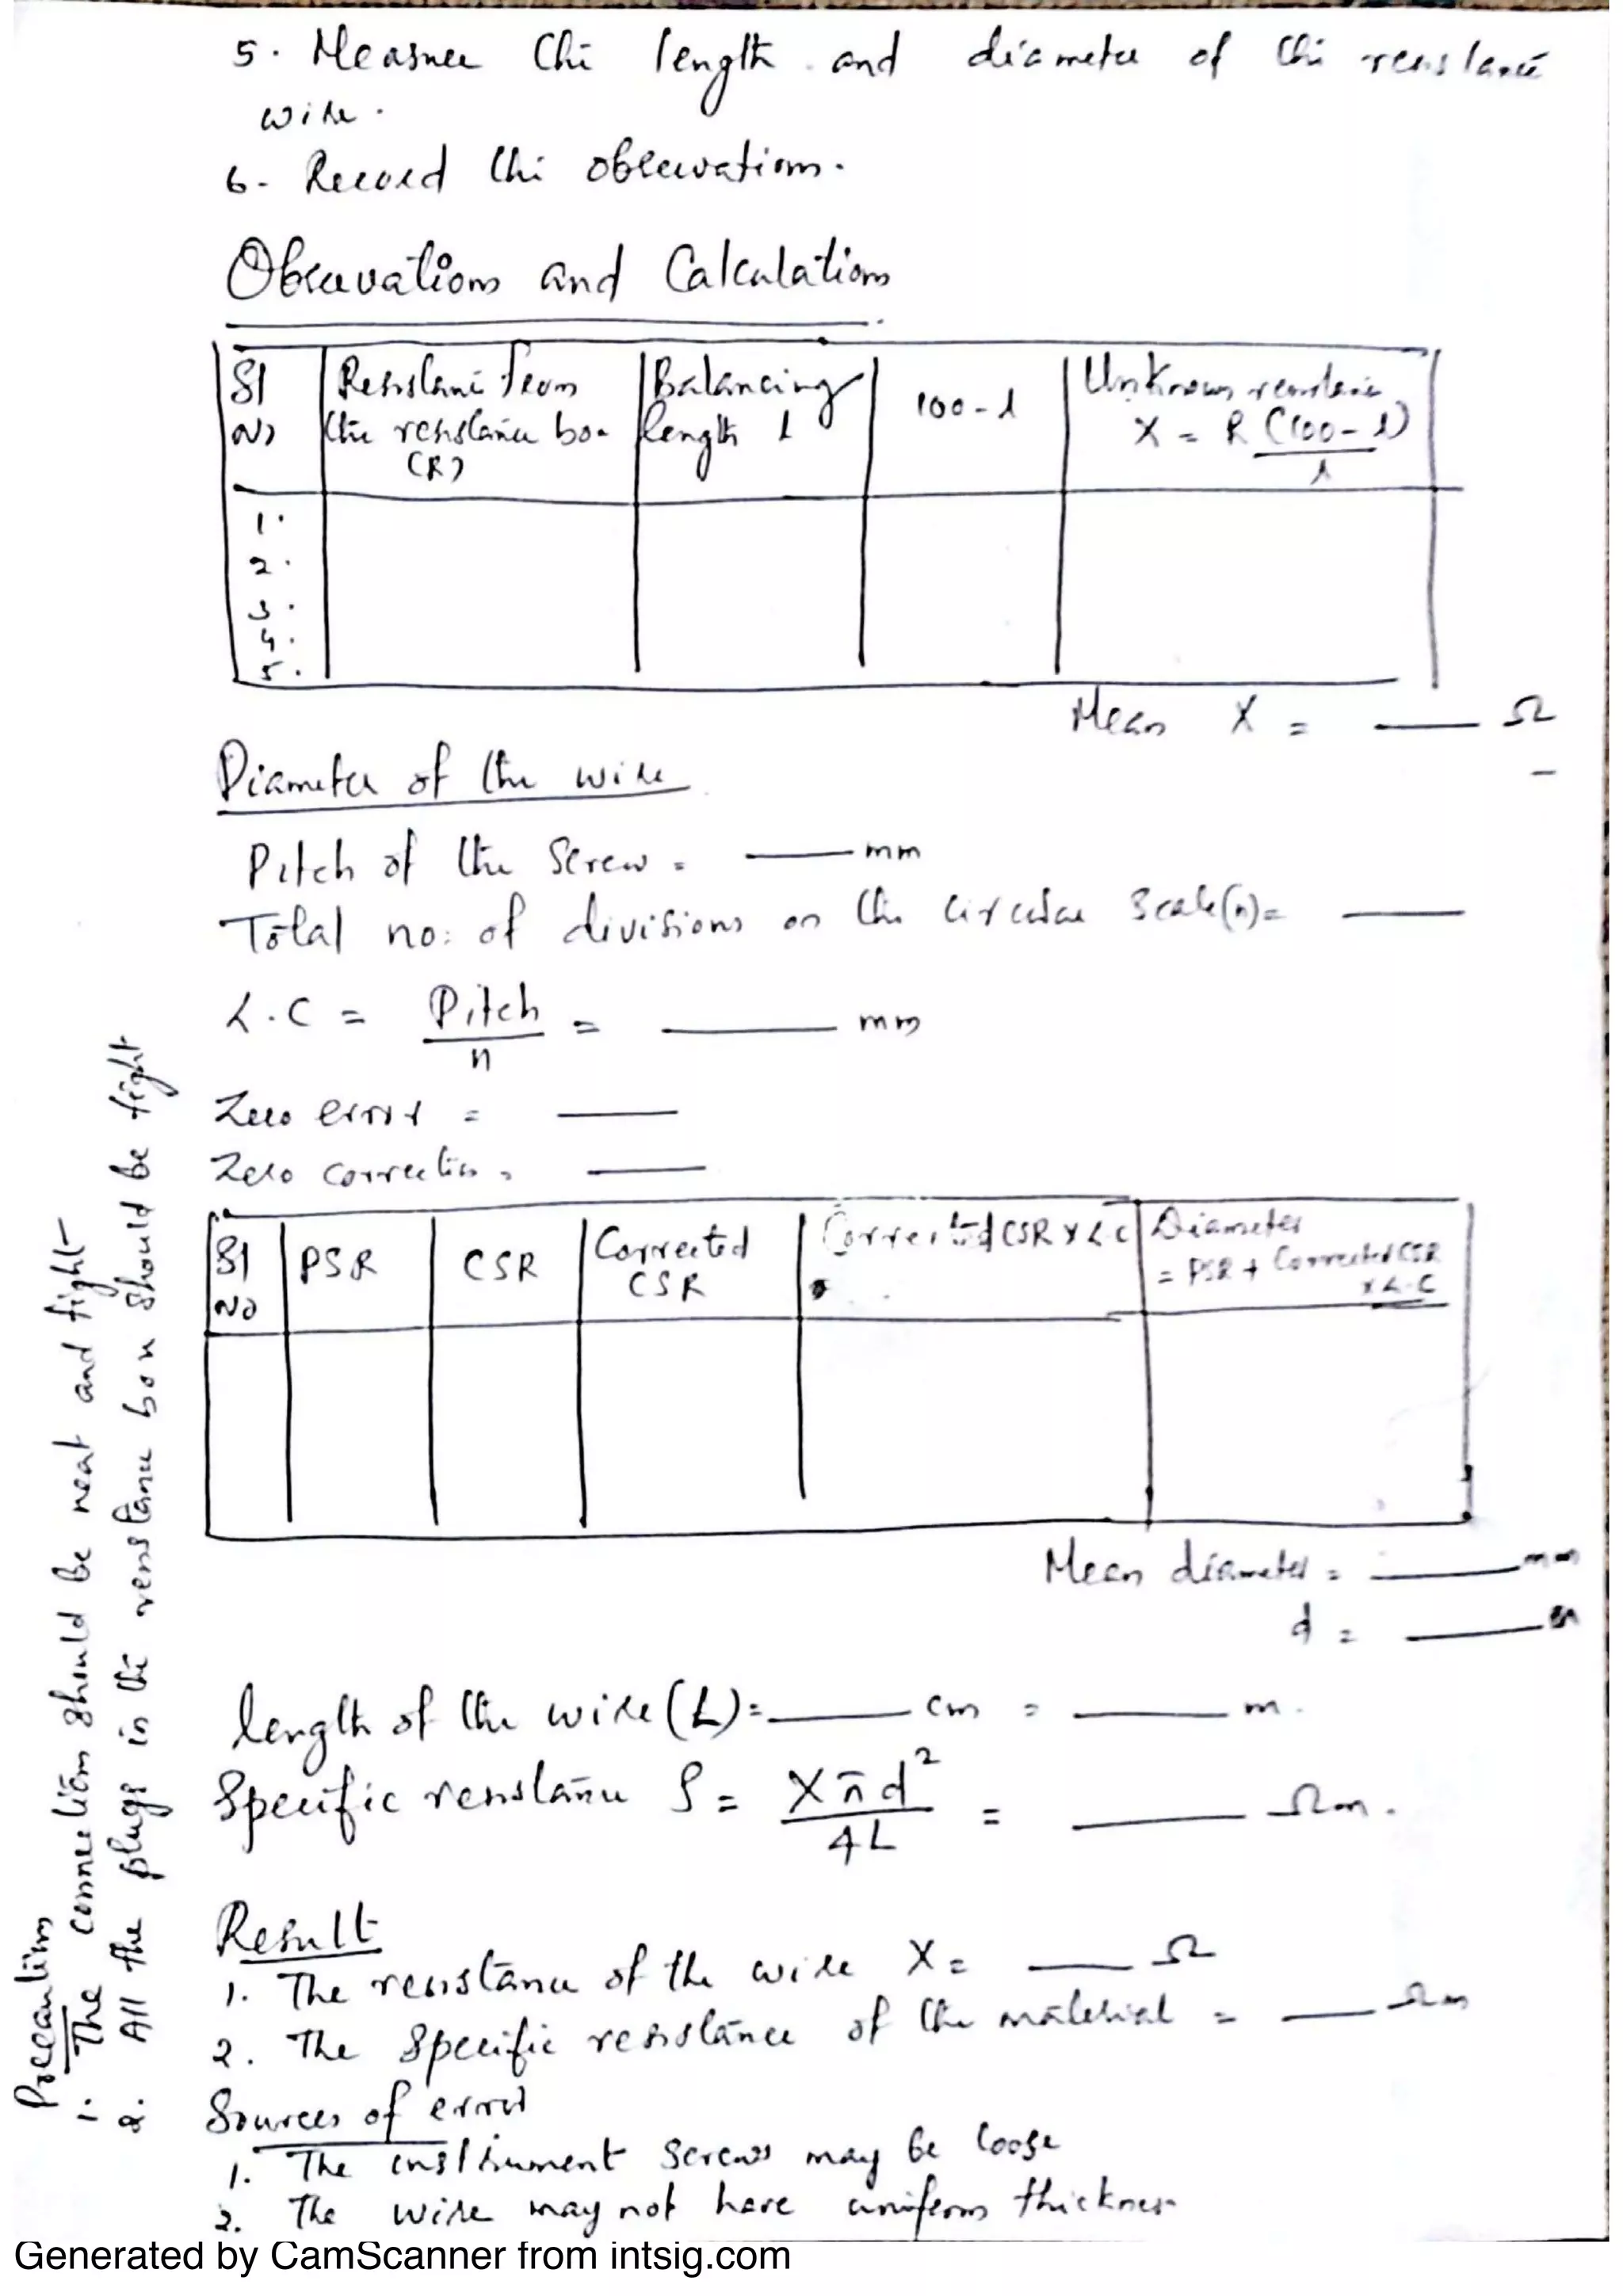 5. Measure the length and diameter of the resistance
wire.
6. Record the observations.
Observations and Calculations
Sl No
Resistance from the resistance box (R)
Balancing length l
100 - l
Unknown resistance X = R (100 - l) / l
1.
2.
3.
4.
5.
Mean X = ___ Ω
Diameter of the wire
Pitch of the Screw = ___ mm
Total no: of divisions on the circular Scale (n) = ___
L.C = Pitch / n = ___ mm
Zero error = ___
Zero correction = ___
Sl No
PSR
CSR
Corrected CSR
Corrected CSR x L.C
Diameter = PSR + Corrected CSR x L.C
Mean diameter = ___ mm
d = ___ m
length of the wire (L) = ___ cm = ___ m.
Specific resistance ρ = Xπd² / 4L = ___ Ωm.
Result
1. The resistance of the wire X = ___ Ω
2. The Specific resistance of the material = ___ Ωm
Sources of error
1. The instrument Screws may be loose
2. The wire may not have uniform thickness
Precautions
1. The connections should be neat and tight
2. All the plugs in the resistance box should be tight
Generated by CamScanner from intsig.com